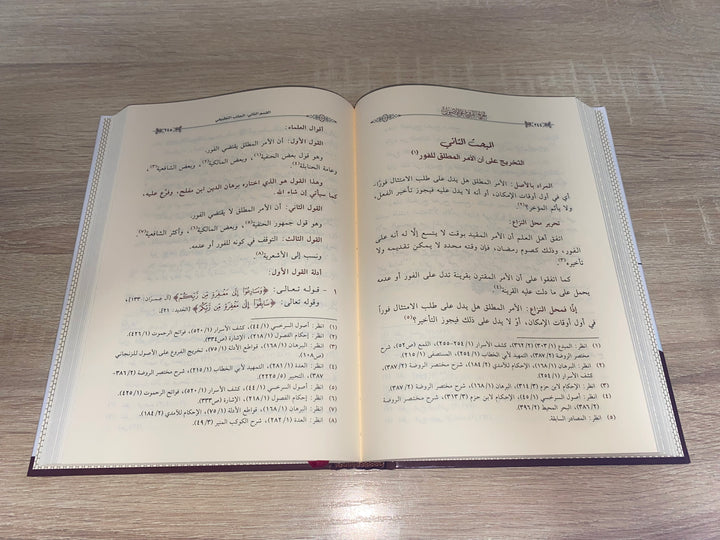 المبحث الثاني
التخريج على أن الأمر المطلق للفور (١)
المراد بالأصل: الأمر المطلق هل يدل على طلب الامتثال فوراً،
أي في أول أوقات الإمكان، أو أنه لا يدل عليه فيجوز تأخير الفعل،
ولا يأثم المؤخر؟(٢)
تحرير محل النزاع:
اتفق أهل العلم أن الأمر المقيد بوقت لا يتسع إلّا له أنه على
الفور، وذلك كصوم رمضان، فإن وقته محدد لا يمكن تقديمه ولا
تأخيره(٣)
كما اتفقوا على أن الأمر المقترن بقرينة تدل على الفور أو عدمه
يحمل على ما دلت عليه القرينة(٤)
إذًا فمحل النزاع: الأمر المطلق هل يدل على طلب الامتثال فوراً
في أول أوقات الإمكان، أوْ لا يدل على ذلك فيجوز التأخير؟(٥)
(١) انظر: المبدع (٣٠٣/١)
مختصر الروضة (٣٨٧/٢)
(٢) انظر:
كشف الأسرار (٢٥٤/١)
(٣) انظر: الإحكام لابن حزم (٣١٣/٣)، البرهان (١٦٨/١)، شرح مختصر الروضة (٣٨٧/٢)
(٤) انظر: أصول السرخسي (٤٥/١)، الإحكام لابن حزم (٣١٣/٣)، شرح مختصر الروضة
(٣٨٧/٢)، البحر المحيط (٣٩٦/٢)
(٥) انظر: المصادر السابقة.
القسم الثاني: الجانب التطبيقي
أقوال العلماء:
القول الأول: أن الأمر المطلق يقتضي الفور.
وهو قول بعض الحنفية(١)، وبعض المالكية(٢)، وبعض الشافعية(٣)،
وعامة الحنابلة(٤)
وهذا القول هو الذي اختاره برهان الدين ابن مفلح، وفرّع عليه،
كما سيأتي إن شاء الله.
القول الثاني: أن الأمر المطلق لا يقتضي الفور.
وهو قول جمهور الحنفية(٥)، وبعض المالكية(٦)، وأكثر الشافعية(٧)
القول الثالث: التوقف في كونه للفور أو عدمه.
ونسب إلى الأشعرية(٨)
أدلة القول الأول:
١ - قوله تعالى: ﴿وَسَارِعُوا إِلَىٰ مَغْفِرَةٍ مِّن رَّبِّكُمْ﴾ [آل عمران: ١٣٣]،
وقوله تعالى: ﴿سَابِقُوا إِلَىٰ مَغْفِرَةٍ مِّن رَّبِّكُمْ﴾ [الحديد: ٢١].
(١) انظر: أصول السرخسي (٤٤/١)، كشف الأسرار (٥٢٠/١)، فواتح الرحموت (٤٢٦/١)
(٢) انظر: إحكام الفصول (٢١٨/١)، الإشارة (ص٣٣٤)
(٣) انظر: البرهان (١٦٨/١)، قواطع الأدلة (٧٥/١)، تخريج الفروع على الأصول للزنجاني
(ص١٠٨)
(٤) انظر: العدة (٢٨١/١)، التمهيد لأبي الخطاب، شرح مختصر الروضة (٣٨٦/٢،
٣٨٧)، التحبير (٢٢٢٥/٥)
(٥) انظر: أصول السرخسي (٤٤/١)، كشف الأسرار (٥٢٠/١)، فواتح الرحموت (٤٢٥/١)
(٦) انظر: إحكام الفصول (٢١٨/١)، الإشارة (ص٣٣٣)
(٧) انظر: البرهان (١٦٨/١)، قواطع الأدلة (٧٥/١)، الإحكام للآمدي (١٨٤/٢)
(٨) انظر: العدة (٢٨٢/١)، شرح الكوكب المنير (٤٩/٣)